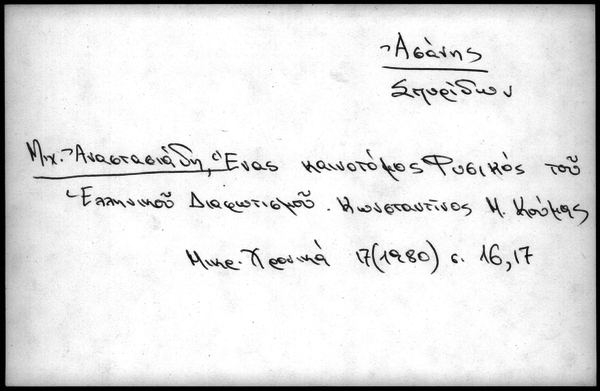 Ἀσάνης
Σπυρίδων
Μιχ. Ἀναστασιάδη, Ἕνας καινοτόμος Φυσικός τοῦ
Ἑλληνικοῦ Διαφωτισμοῦ. Κωνσταντῖνος Μ. Κούμας
Μικρ. Χρονικά 17(1980) σ. 16,17